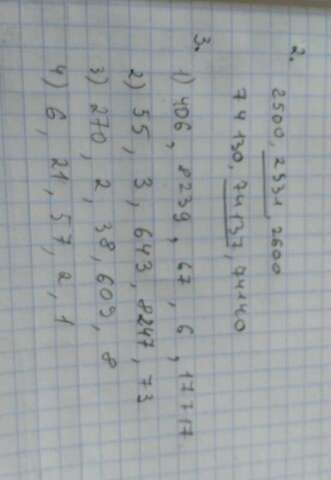 2.
2500, 2531, 2600
74130, 74137, 74140
3.
1) 406, 8239, 67, 6, 17717
2) 55, 3, 643, 8247, 73
3) 270, 2, 38, 609, 8
4) 6, 21, 57, 2, 1